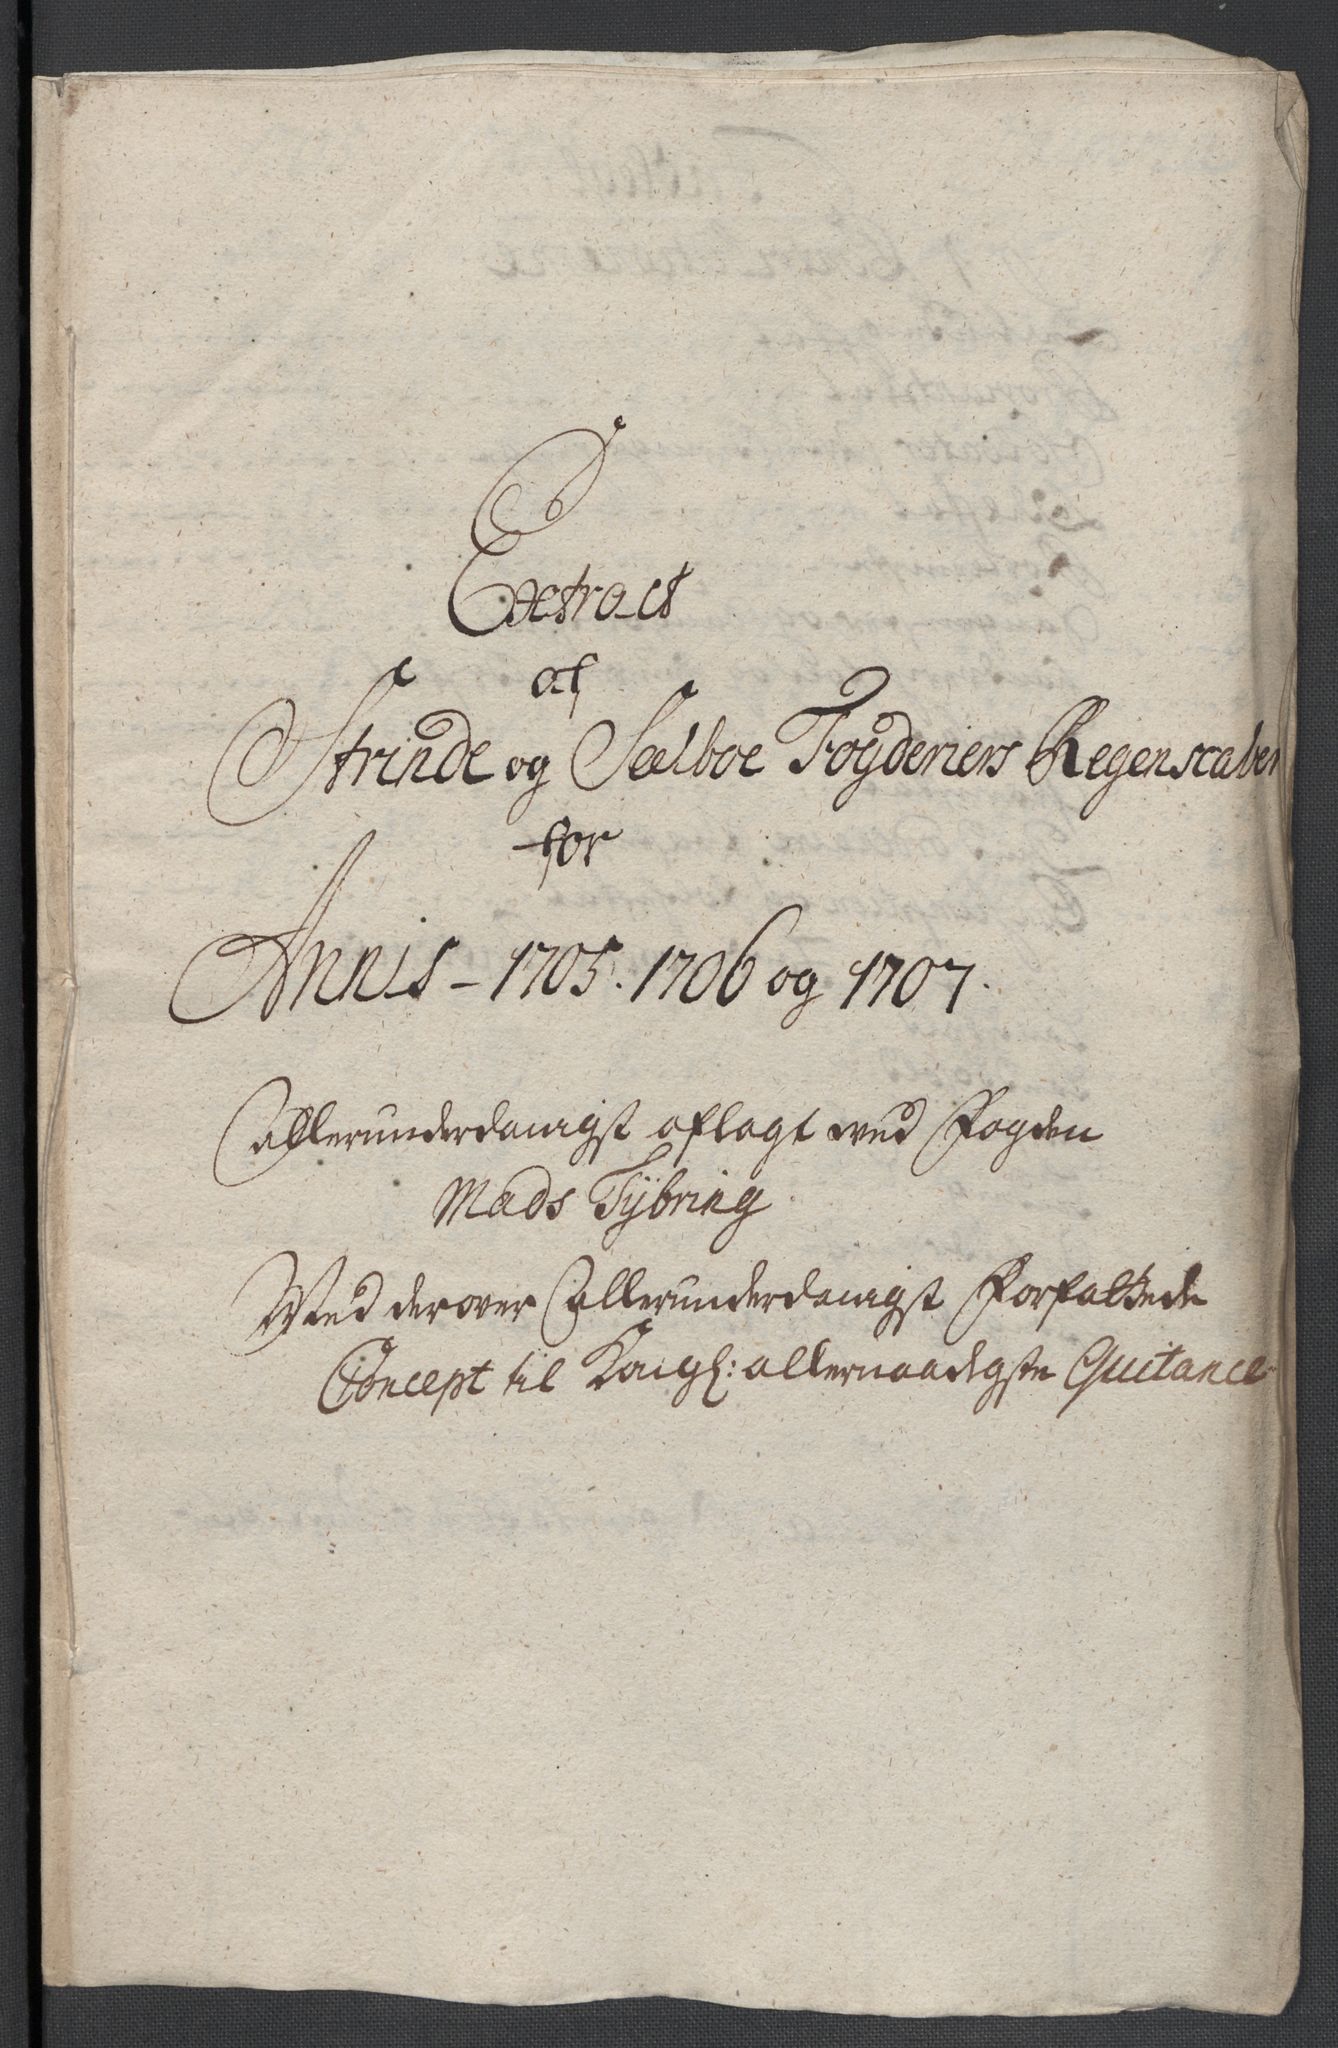 Extract
af
Strinde og Sælboe Fogderiers Regenscaber
for
Annis - 1705. 1706 og 1707.
Allerunderdanigst aflagt ved Fogden
Mads Tybring
Med derover Allerunderdanigst Forfattede
Concept til Kongl: allernaadigste Quitance